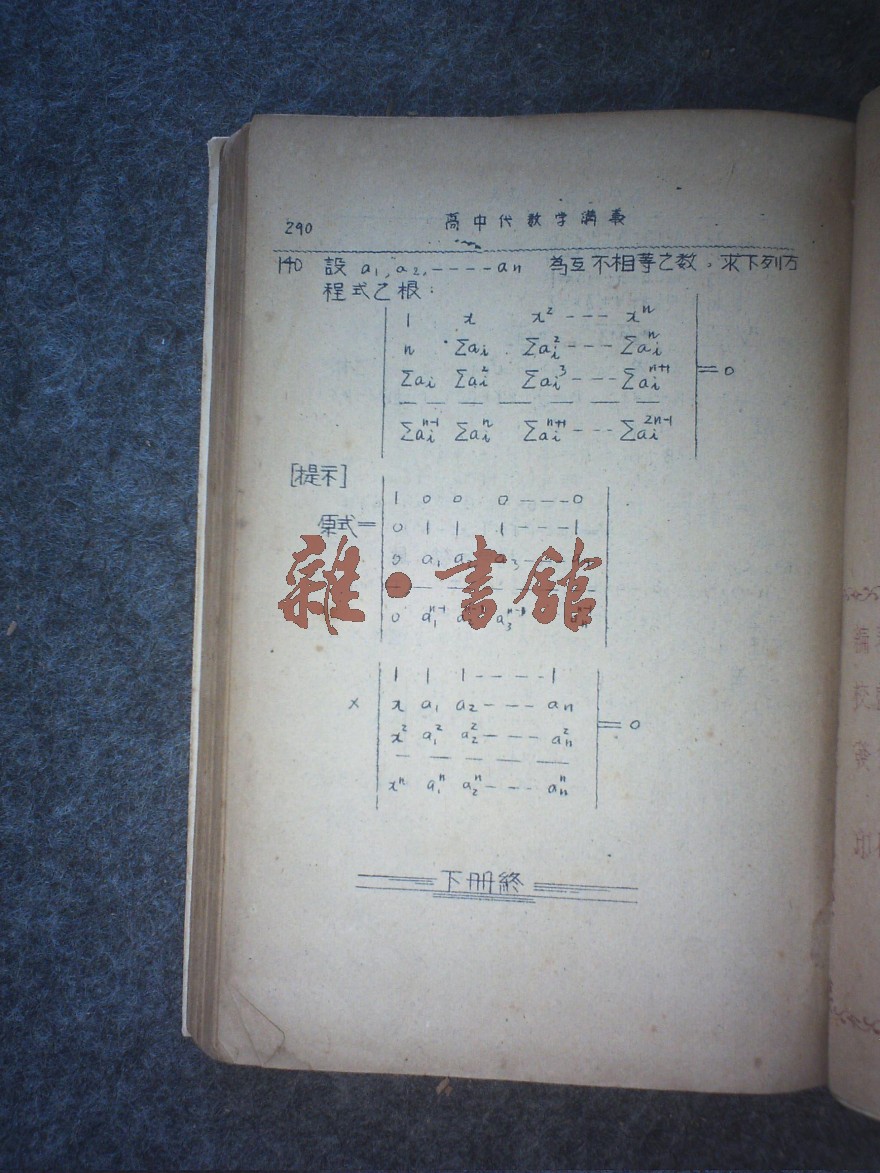 290
高中代数学講義
140 設 a₁, a₂, ----- aₙ 為互不相等之数，求下列方
程式之根：
1 x x² --- xⁿ
n Σaᵢ Σaᵢ² --- Σaᵢⁿ
Σaᵢ Σaᵢ² Σaᵢ³ --- Σaᵢⁿ⁺¹ = 0
— — — — — — —
Σaᵢⁿ⁻¹ Σaᵢⁿ Σaᵢⁿ⁺¹ --- Σaᵢ²ⁿ⁻¹
[提示]
1 0 0 0 --- 0
原式= 0 1 1 1 --- 1
0 a₁
雜·書館
0 a₁ⁿ⁻¹
1 1 1 ---- 1
× x a₁ a₂ --- aₙ
x² a₁² a₂² --- aₙ² = 0
— — — — —
xⁿ a₁ⁿ a₂ⁿ --- aₙⁿ
下册終